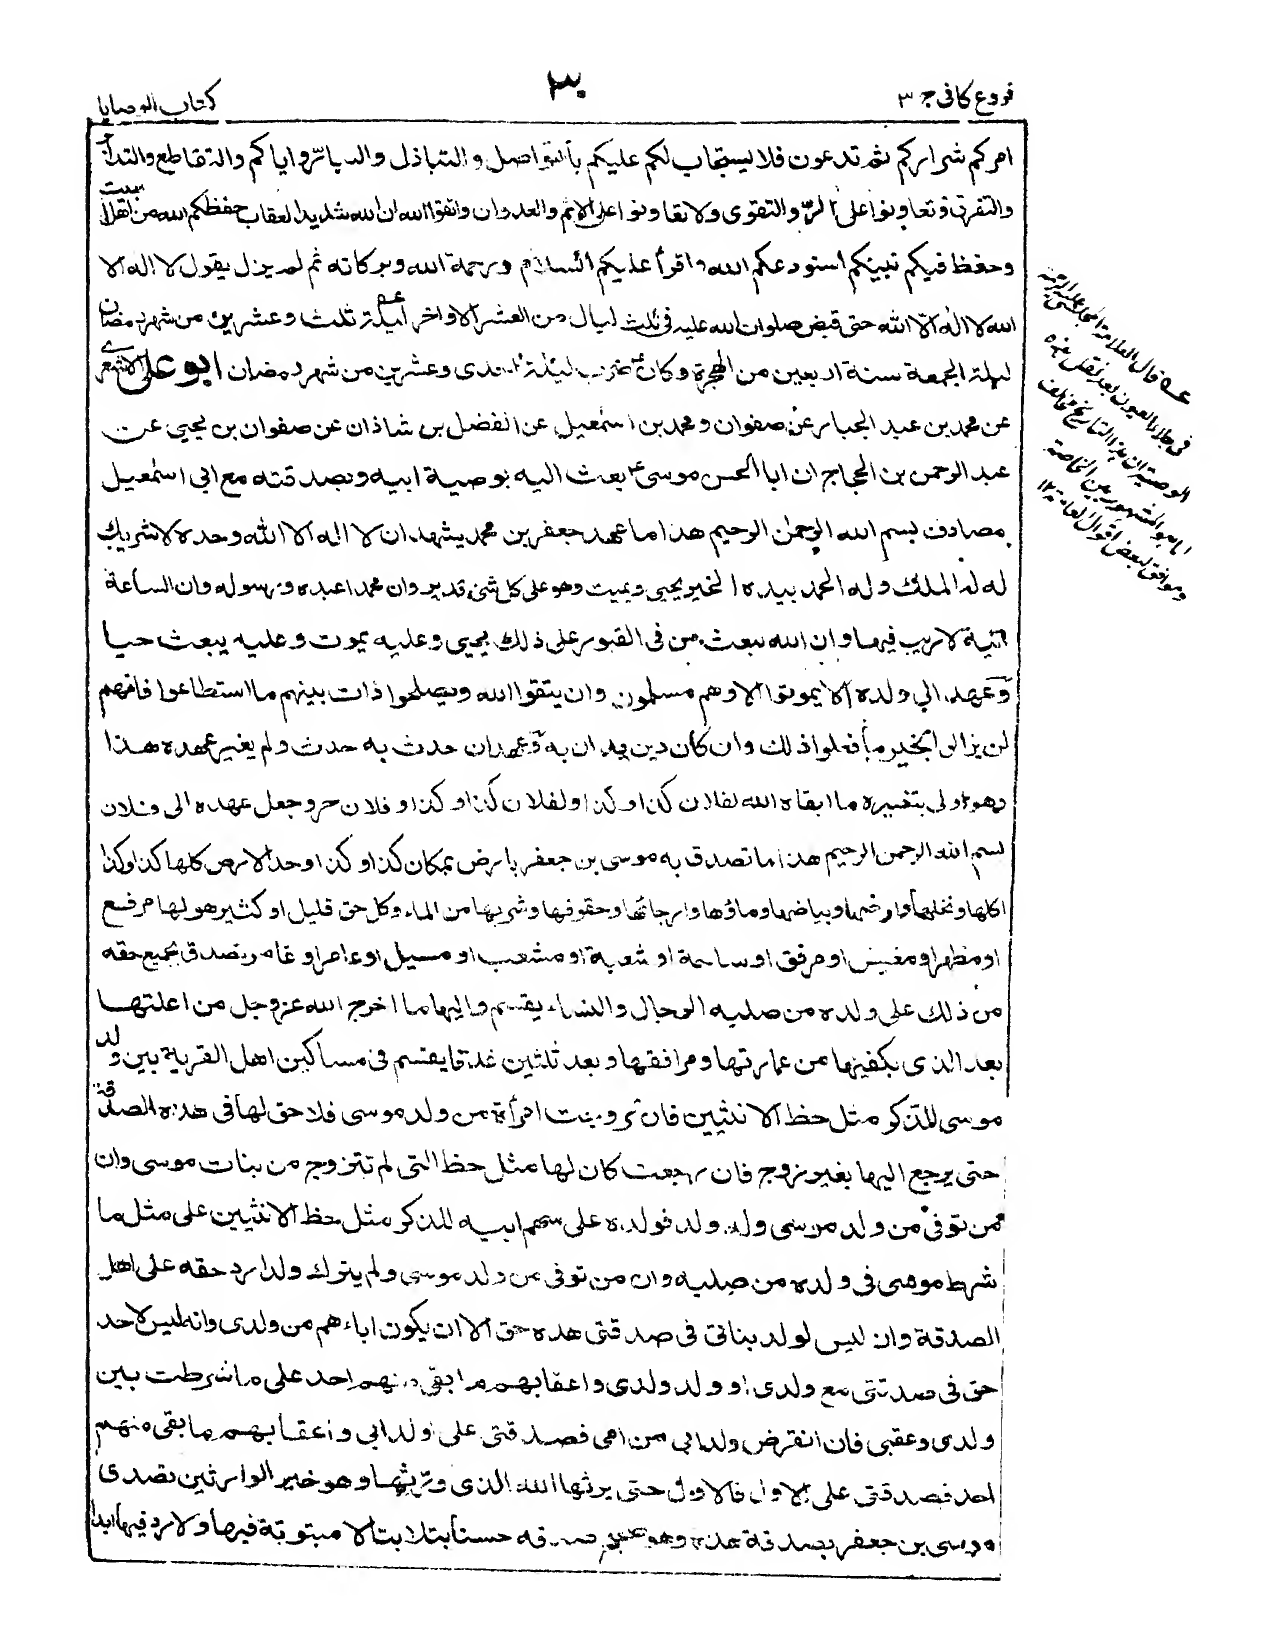 فروع كافى ج ٣
٣٠
كتاب الوصايا
امركم شراركم ثم تدعون فلا يستجاب لكم عليكم بالتواصل و التباذل و التبار و اياكم والتقاطع والتدابر
والتفرق و تعاونوا على البرّ والتقوى ولا تعاونوا على الاثم والعدوان واتقوا الله ان الله شديد العقاب حفظكم الله من اهل بيت
وحفظ فيكم نبيكم استودعكم الله و اقرأ عليكم السلام و رحمة الله وبركاته ثم لم يزل يقول لا اله الا
الله لا اله الا الله حتى قبض صلوات الله عليه فى ثلث ليال من العشر الاواخر ليلة ثلث وعشرين من شهر رمضان
ليلة الجمعة سنة اربعين من الهجرة وكان ضرب ليلة احدى وعشرين من شهر رمضان ابو على الاشعرى
عن محمد بن عبد الجبار عن صفوان و محمد بن اسمعيل عن الفضل بن شاذان عن صفوان بن يحيى عن
عبد الرحمن بن الحجاج ان ابا الحسن موسى ع بعث اليه بوصية ابيه وبصدقته مع ابى اسمعيل
مصادف بسم الله الرحمن الرحيم هذا ما عهد جعفر بن محمد يشهد ان لا اله الا الله وحده لا شريك
له له الملك وله الحمد بيده الخير يحيى ويميت وهو على كل شئ قدير وان محمدا عبده ورسوله وان الساعة
اتية لا ريب فيها وان الله يبعث من فى القبور على ذلك يحيى وعليه يموت وعليه يبعث حيا
وعهد الى ولده الا يموتوا الا وهم مسلمون وان يتقوا الله ويصلحوا ذات بينهم ما استطاعوا فانهم
لن يزالوا بخير ما فعلوا ذلك وان كان دين يدان به وعهد ان حدث به حدث ولم يغير عهده هذا
وهو اولى بتغييره ما ابقاه الله لفلان كذا وكذا ولفلان كذا وكذا وفلان حر وجعل عهده الى فلان
بسم الله الرحمن الرحيم هذا ما تصدق به موسى بن جعفر بارض بمكان كذا وكذا وحد الارض كلها كذا وكذا
كلها ونخلها وارضها وبياضها وماؤها وارجائها وحقوقها وشربها من الماء وكل حق قليل او كثير هو لها مرفع
او مظهر او مغيض او مرفق او ساحة او شعبة او مشعب او مسيل او عامر او غامر تصدق بجميع حقه
من ذلك على ولده من صلبه الرجال والنساء يقسم واليها ما اخرج الله عز وجل من غلتها
بعد الذى يكفيها من عمارتها ومرافقها وبعد ثلثين عذقا يقسم فى مساكين اهل القرية بين ولد
موسى للذكر مثل حظ الانثيين فان تزوجت امرأة من ولد موسى فلا حق لها فى هذه الصدقة
حتى يرجع اليها بغير زوج فان رجعت كان لها مثل حظ التى لم تتزوج من بنات موسى وان
من توفى من ولد موسى وله ولد فولده على سهم ابيه للذكر مثل حظ الانثيين على مثل ما
شرط موسى فى ولده من صلبه وان من توفى من ولد موسى ولم يترك ولدا رد حقه على اهل
الصدقة وان ليس لولد بناتى فى صدقتى هذه حق الا ان يكون اباءهم من ولدى وانه ليس لاحد
حق فى صدقتى مع ولدى او ولد ولدى واعقابهم ما بقى منهم احد على ما شرطت بين
ولدى وعقبى فان انقرض ولد ابى من امى فصدقتى على ولد ابى واعقابهم ما بقى منهم
احد فصدقتى على الاول فالاول حتى يرثها الله الذى ورثها وهو خير الوارثين تصدق
موسى بن جعفر بصدقة هذه وهو صحيح صدقه حسنا بتلا بتا لا مبتوتة فيها ولا رد فيها ابدا
عـه قال العلامة المجلسى عليه الرحمة
فى جلاء العيون بعد نقل هذه
الوصية ان هذا التاريخ مخالف
لما هو المشهور بين الخاصة
وموافق لبعض اقوال العامة ١٢